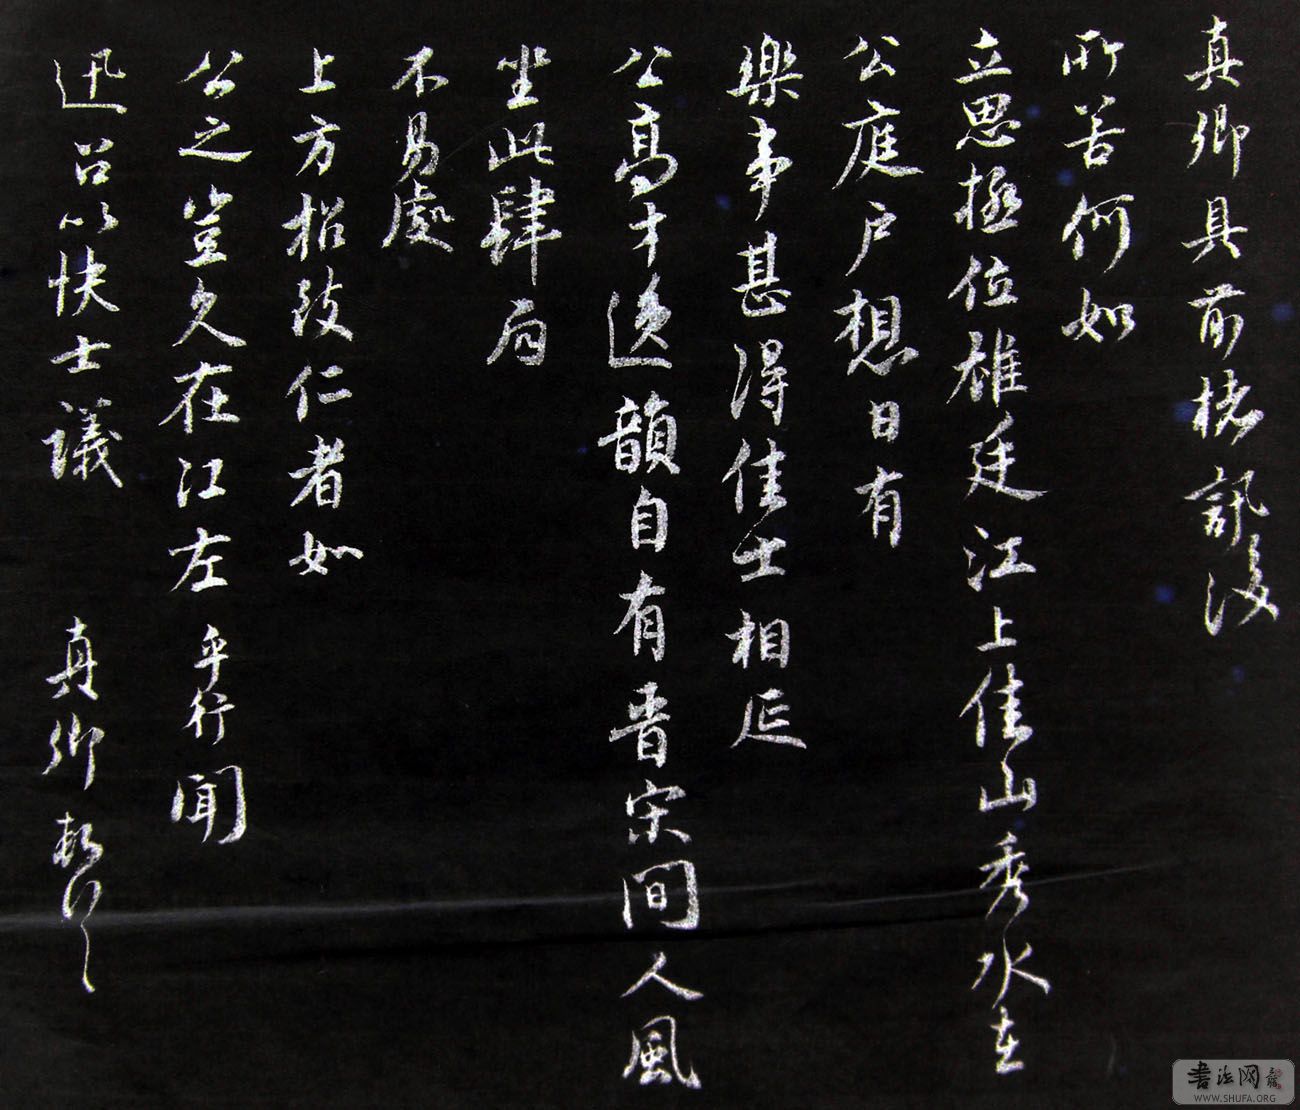 真卿具前楮訊後
所苦何如
立思極位雄廷江上佳山秀水在
公庭户想日有
樂事甚得佳士相延
公高才逸韻自有晋宋間人風
坐此肆局
不易處
上方招致仁者如
公之豈久在江左乎行聞
迅召以快士議 真卿
書法网
WWW.SHUFA.ORG